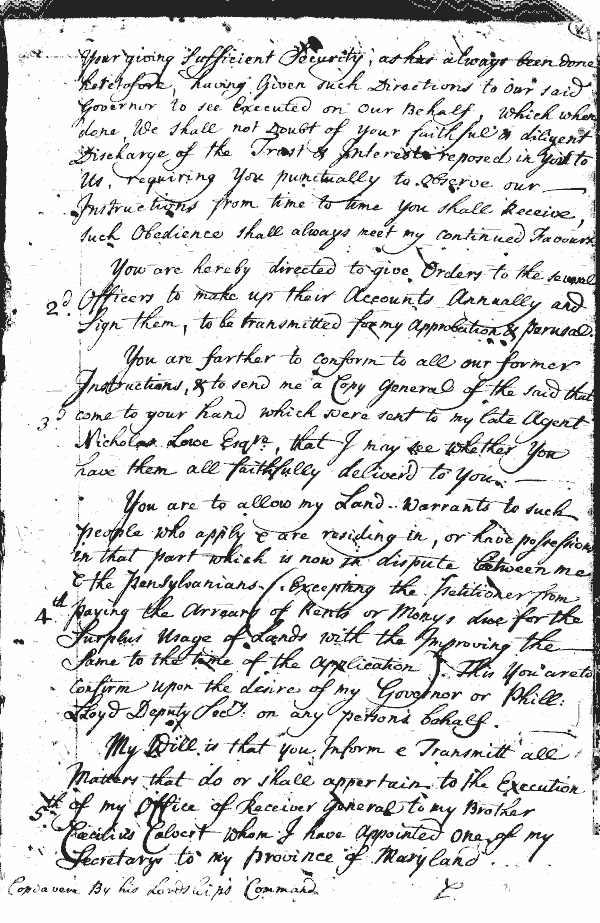 Your giving Sufficient Security, as has always been done
heretofore, having Given such Directions to our said
Governor to see Executed on Our Behalf, which when
done, We shall not Doubt of your faithful & diligent
Discharge of the Trust & Interests reposed in You to
Us, requiring You punctually to observe our
Instructions from time to time you shall Receive,
such Obedience shall always meet my continued Favours
You are hereby directed to give Orders to the several
2d. Officers to make up their Accounts Annually and
Sign them, to be transmitted for my Approbation & perusal.
You are farther to conform to all our former
Instructions, & to send me a Copy General of the said that
3d come to your hand which were sent to my late Agent
Nicholas Lowe Esqr., that I may see whether You
have them all faithfully deliverd to You.
You are to allow my Land-Warrants to such
people who apply & are residing in, or have possession
in that part which is now in dispute between me
& the Pensylvanians (Excepting the Petitioner from
4th paying the Arrears of Rents or Monys due for the
Surplus Usage of Lands with the Improving the
Same to the time of the Application). This You are to
Confirm upon the desire of my Governor or Phill:
Lloyd Deputy Secry. on any persons behalf.
My Will is that you Inform & Transmitt all
Matters that do or shall appertain to the Execution
5th of my Office of Receiver General to my Brother
Cæcilius Calvert whom I have appointed one of my
Secretarys to my province of Maryland.
Copia vera By his Lordships Command